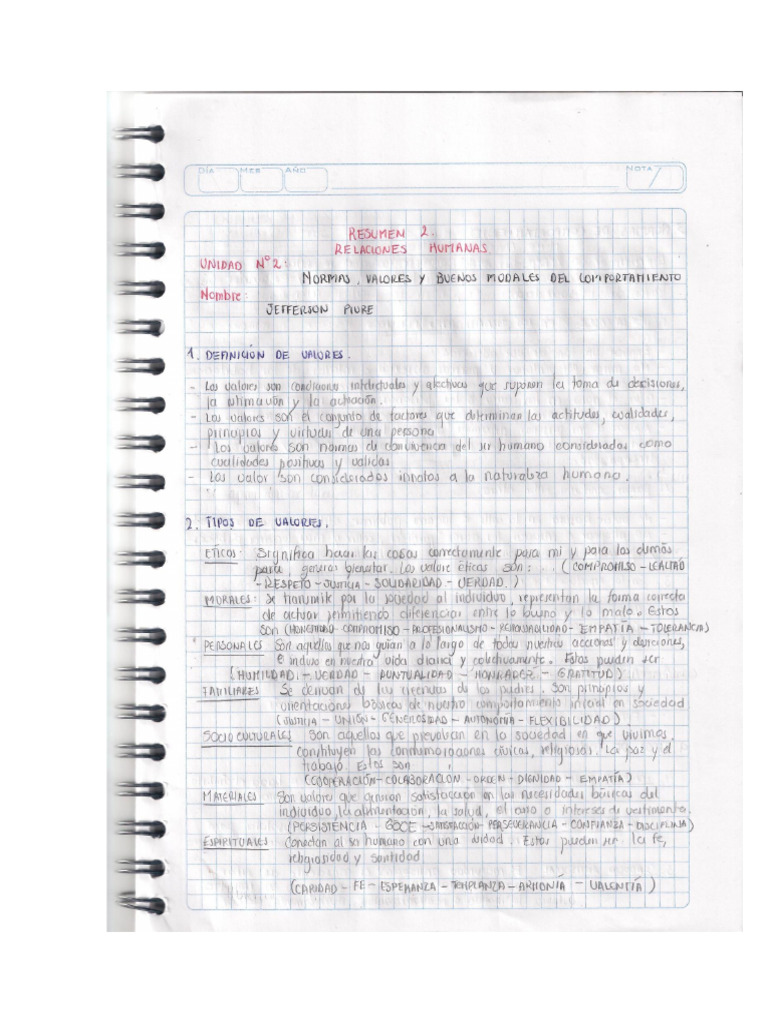 DÍA MES AÑO NOTA
RESUMEN 2.
RELACIONES HUMANAS
UNIDAD Nº2:
NORMAS, VALORES Y BUENOS MODALES DEL COMPORTAMIENTO
Nombre:
JEFFERSON PIURE
1. DEFINICIÓN DE VALORES.
- Los valores son condiciones intelectuales y afectivas que suponen la toma de decisiones,
la y la actuación.
- Los valores son el conjunto de factores que determinan las actitudes, cualidades,
principios y virtudes de una persona
- Los valores son normas de convivencia del ser humano considerados como
cualidades positivas y validas
- Los valor son considerados innatos a la naturaleza humana.
2. TIPOS DE VALORES.
ETICOS: Significa hacer las cosas correctamente para mi y para los demás
para generar bienestar. Los valore éticos son: (COMPROMISO - LEALTAD
- RESPETO - JUSTICIA - SOLIDARIDAD - VERDAD.)
MORALES: Se transmite por la sociedad al individuo, representan la forma correcta
de actuar permitiendo diferenciar entre lo bueno y lo malo. Estos
son (HONESTIDAD - COMPROMISO - PROFESIONALISMO - RESPONSABILIDAD - EMPATÍA - TOLERANCIA)
PERSONALES Son aquellos que nos guian a lo largo de todas nuestras acciones y
e incluso en nuestra vida diaria y colectivamente. Estos pueden ser:
(HUMILDAD. - VERDAD - PUNTUALIDAD - HONRADEZ - GRATITUD)
FAMILIARES Se derivan de las creencias de los padres. Son principios y
orientaciones básicas de nuestro comportamiento inicial en sociedad
(JUSTICIA - UNIÓN - GENEROSIDAD - AUTONOMÍA - FLEXIBILIDAD)
SOCIO CULTURALES Son aquellos que prevalecen en la sociedad en que vivimos,
constituyen las conmemoraciones cívicas, religiosos. La paz y el
trabajo. Estos son
(COOPERACIÓN - COLABORACION - ORDEN - DIGNIDAD - EMPATÍA)
MATERIALES Son valores que generan satisfacción en las necesidades básicas del
individuo, la alimentación, la salud, el caso o intereses de vestimenta.
(PERSISTENCIA - GOCE - SATISFACCIÓN - PERSEVERANCIA - CONFIANZA - DISCIPLINA)
ESPIRITUALES Conectan al ser humano con una deidad. Estos pueden ser la fe,
religiosidad y santidad
(CARIDAD - FE - ESPERANZA - TEMPLANZA - ARMONÍA - VALENTÍA)